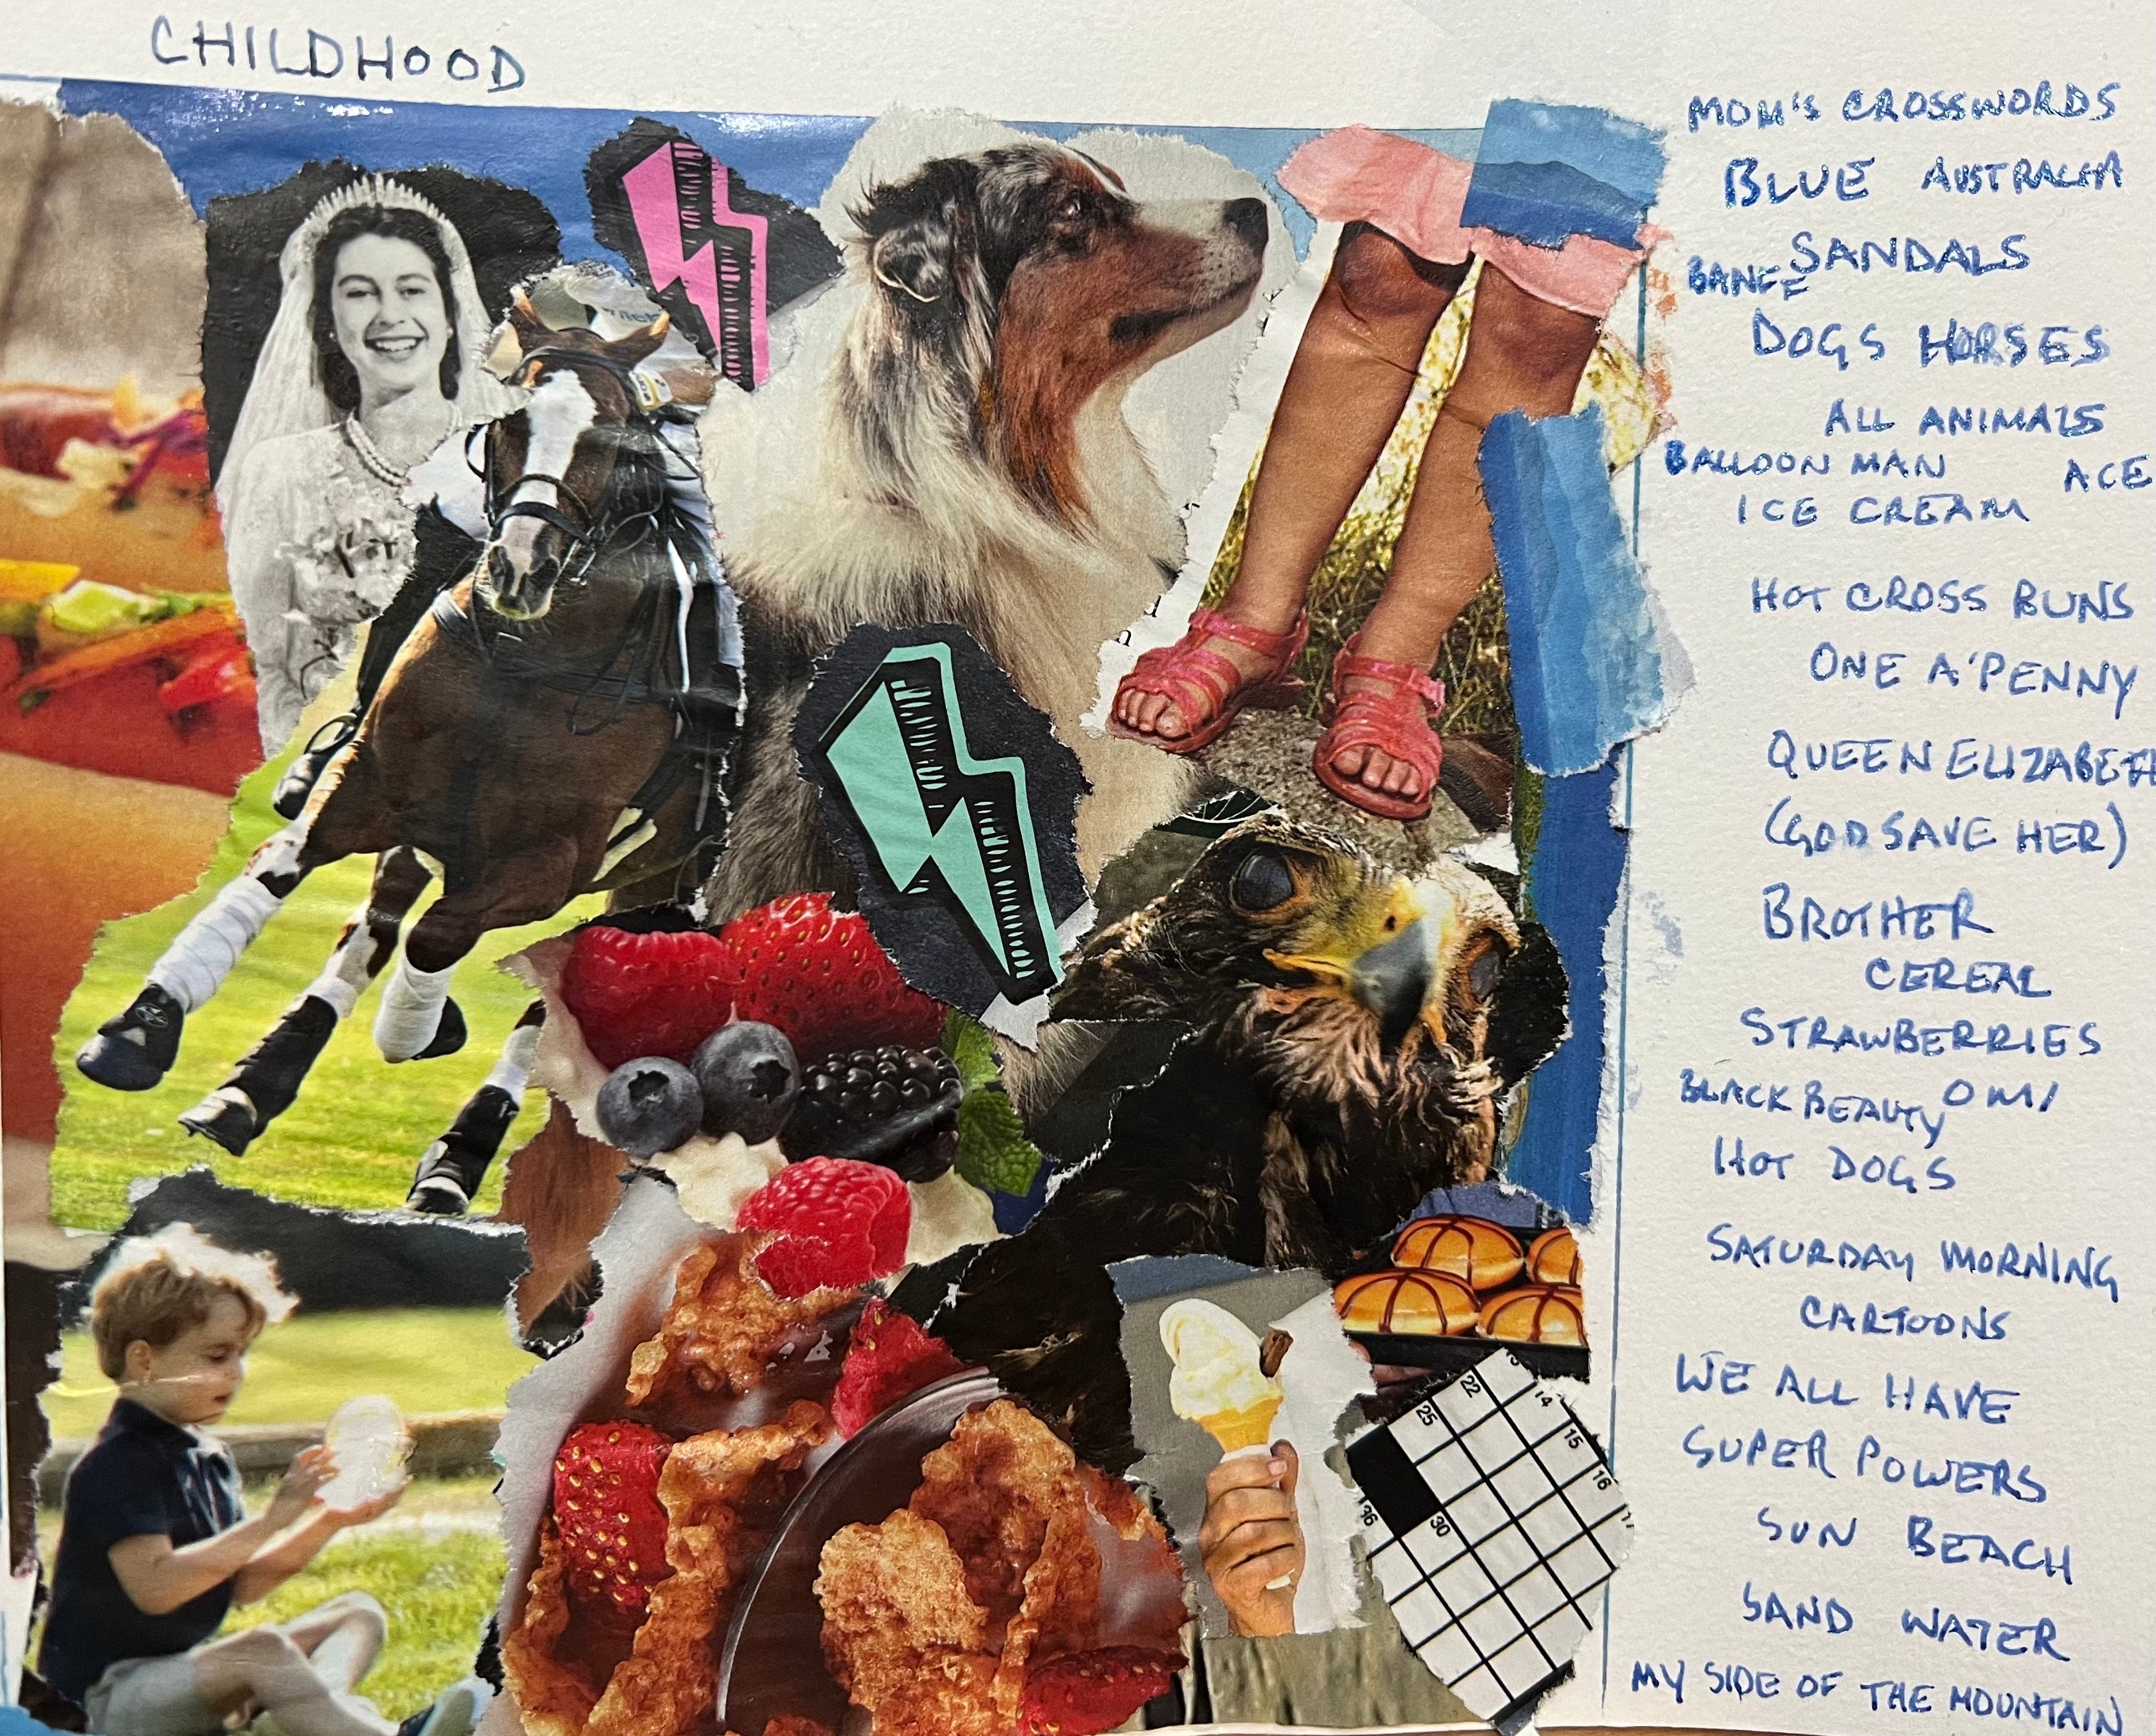 CHILDHOOD
MOM'S CROSSWORDS
BLUE AUSTRALIA
SANDALS
DOGS HORSES
ALL ANIMALS
BALLOON MAN ACE
ICE CREAM
HOT CROSS BUNS
ONE A'PENNY
QUEEN ELIZABETH
(GOD SAVE HER)
BROTHER
CEREAL
STRAWBERRIES
BLACK BEAUTY OMI
HOT DOGS
SATURDAY MORNING
CARTOONS
WE ALL HAVE
SUPER POWERS
SUN BEACH
SAND WATER
MY SIDE OF THE MOUNTAIN
22
14
25
15
16
30
36